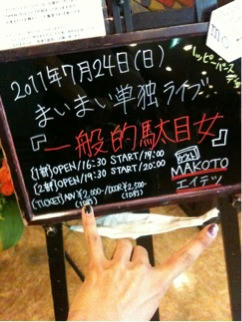 2011年7月24日(日)
まいまい単独ライブ
『一般的駄目女』
(1部)OPEN/16:30 START/17:00
(2部)OPEN/19:30 START/20:00
(TICKET)ADV ¥2,000-/DOOR ¥2,500-
(1D付) (1D付)
MAKOTO
エイテツ
ハッピーバースデー